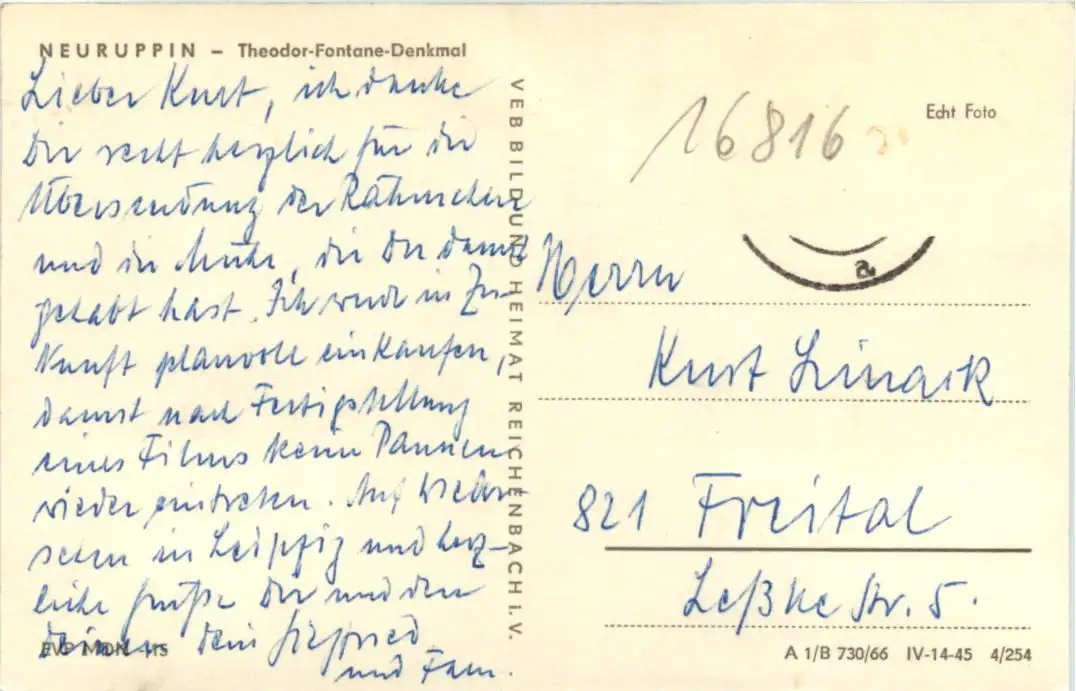 NEURUPPIN – Theodor-Fontane-Denkmal
Lieber Kurt, ich danke
Dir recht herzlich für die
Übersendung der Rähmchen
und die Mühe, die Du damit
gehabt hast. Ich werde in Zu-
kunft planvoll einkaufen,
damit nach Fertigstellung
eines Films keine Pannen
wieder eintreten. Auf Wieder
sehen in Leipzig und herz-
liche Grüße Dir und den
Deinen Dein Siegfried
und Fam.
EVP MDN -,15
VEB BILD UND HEIMAT REICHENBACH i. V.
Echt Foto
16816
a
Herrn
Kurt
821 Freital
Leßke Str. 5.
A 1/B 730/66 IV-14-45 4/254